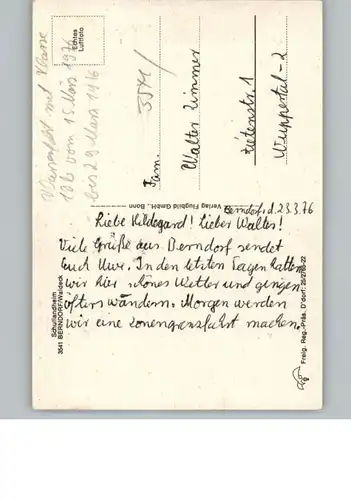 Klassenfahrt mit Klasse
10b vom 15 März 1976
bis 29 März 1976
Echtes
Luftfoto
3541/
Fam.
Walter Zimmer
Wuppertal-2
Verlag Flugbild GmbH., Bonn
Berndorf, d. 23.3.76
Liebe Hildegard! Lieber Walter!
Viele Grüße aus Berndorf sendet
Euch Uwe. In den letzten Tagen hatten
wir hier schönes Wetter und gingen
öfters wandern. Morgen werden
wir eine Zonengrenzfahrt machen.
Schullandheim
3541 BERNDORF/Waldeck
Freig. Reg.-Präs. D'dorf: